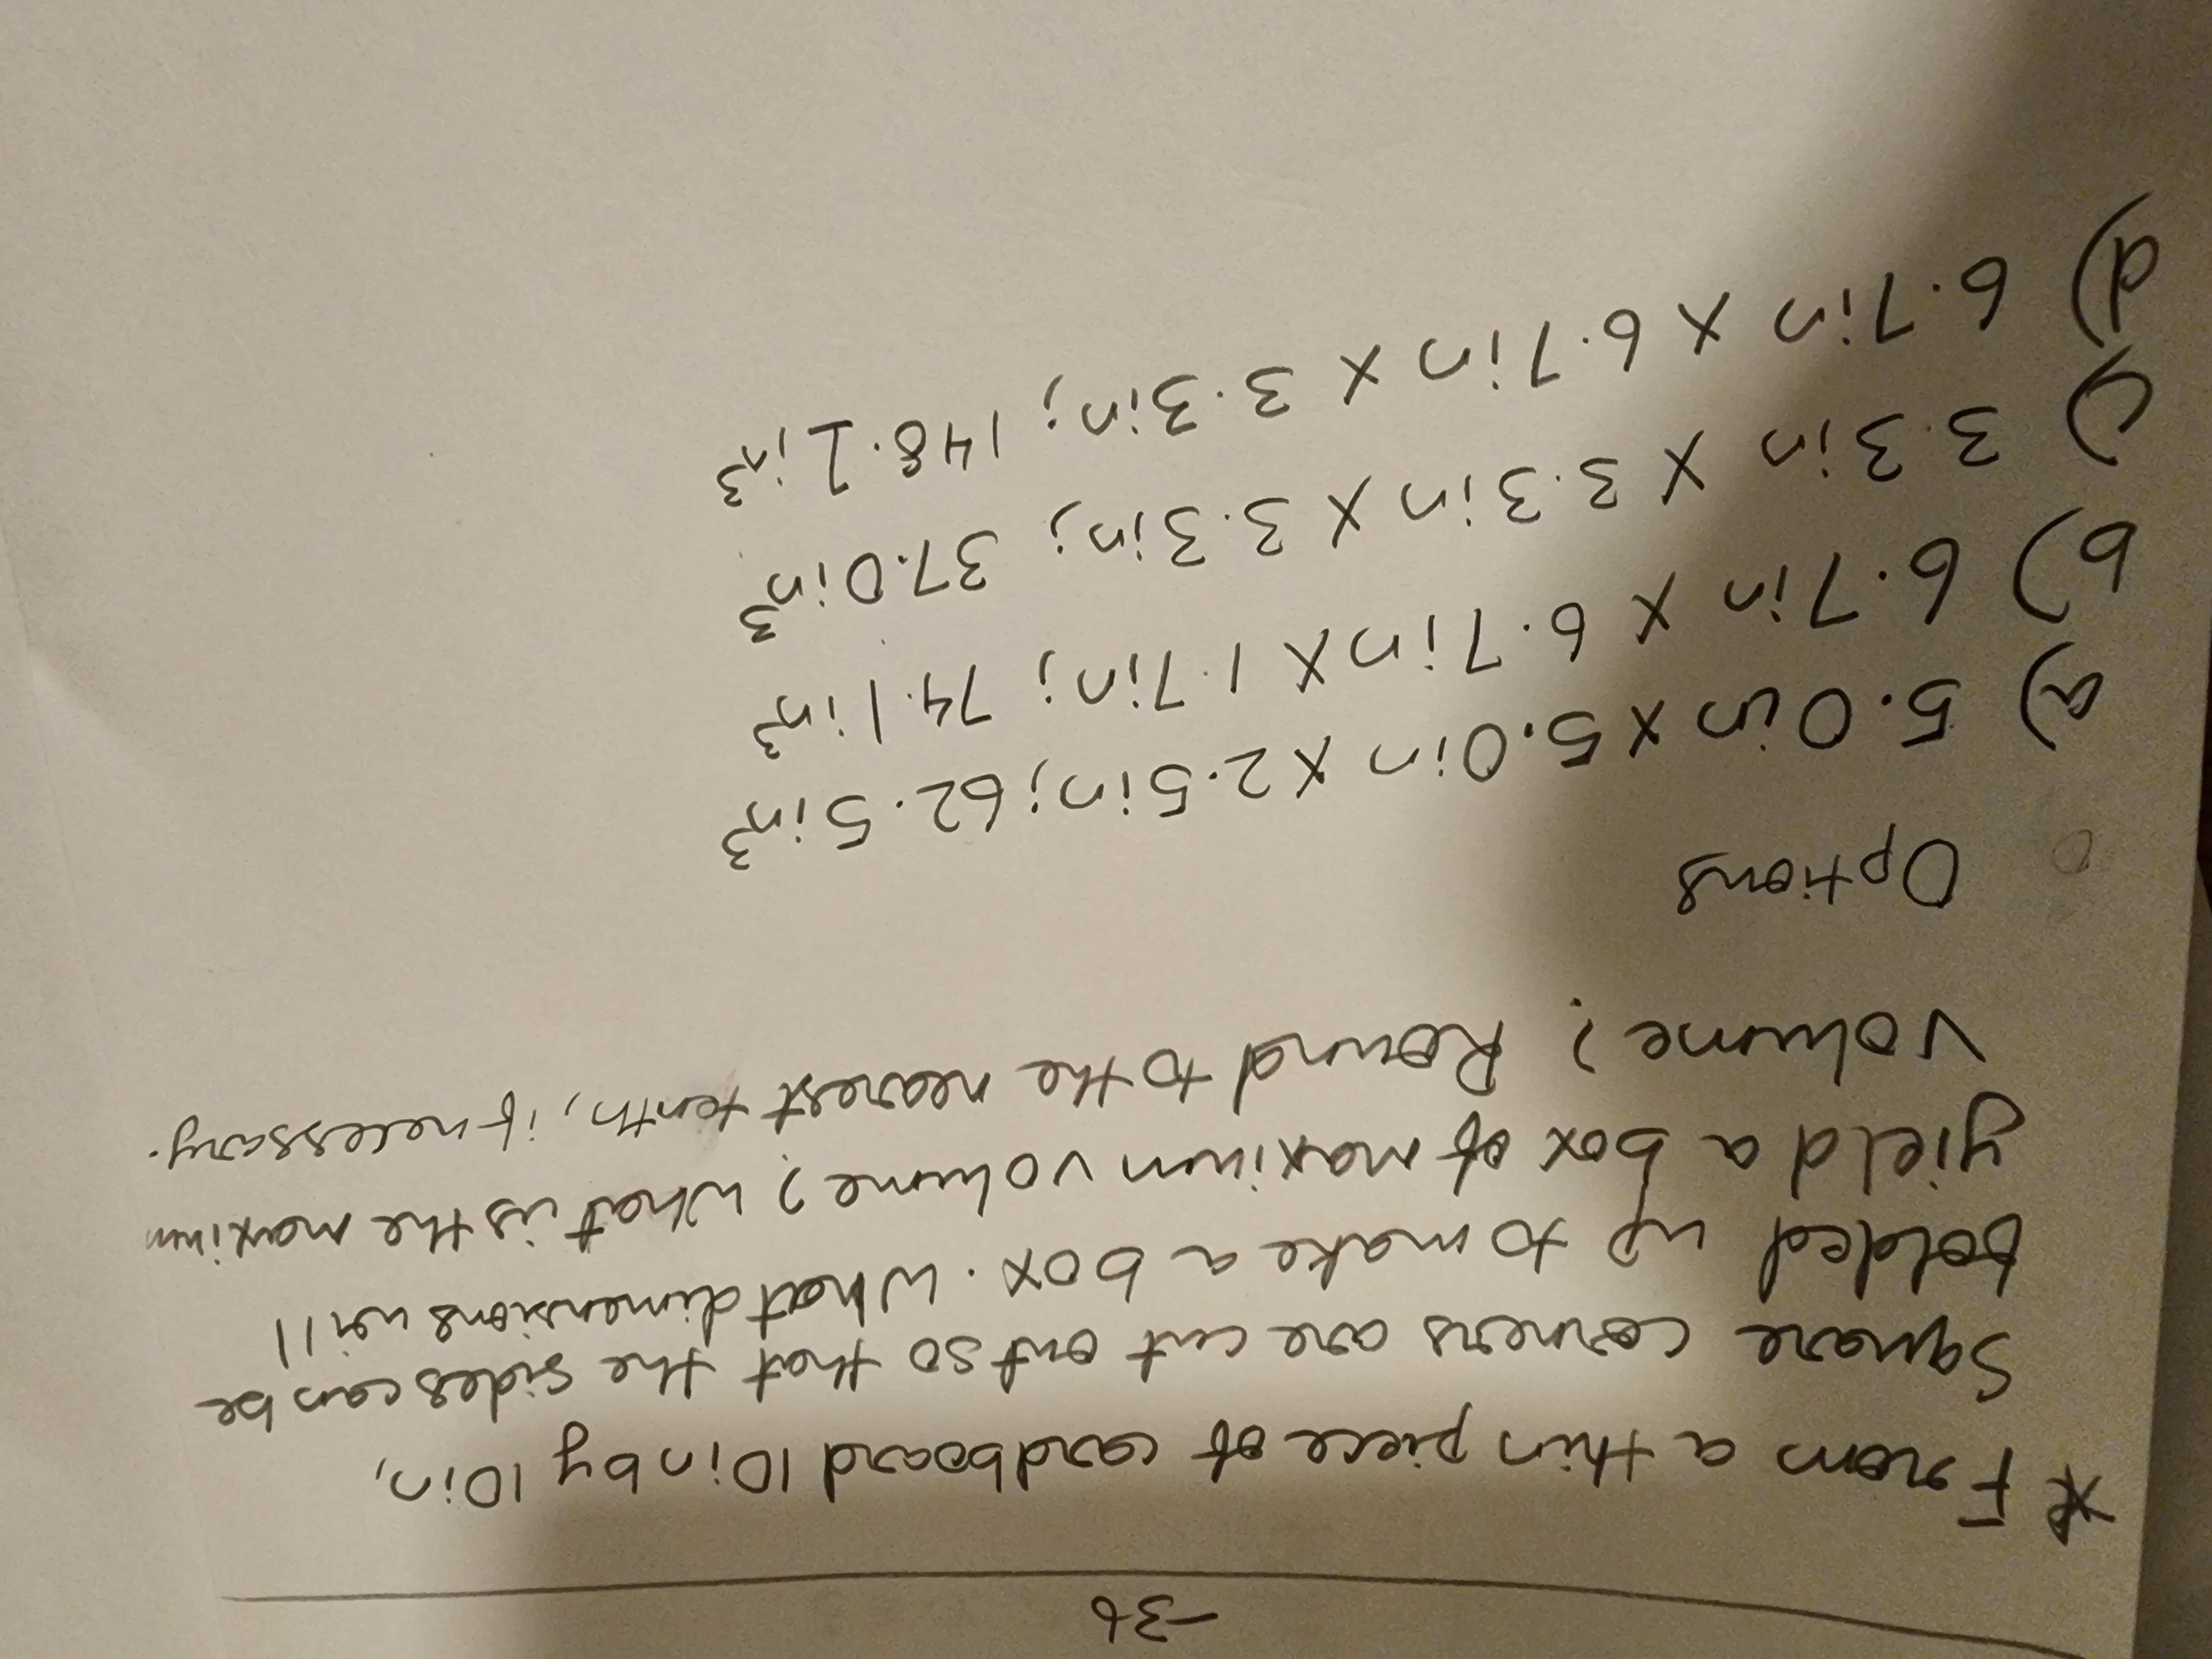 -36
* From a thin piece of cardboard 10in by 10in,
Square corners are cut out so that the sides can be
folded up to make a box. What dimensions will
yield a box of maximum volume? What is the maximum
volume? Round to the nearest tenth, if necessary.
Options
a) 5.0in x 5.0in x 2.5in; 62.5in³
b) 6.7in x 6.7in x 1.7in; 74.1in³
c) 3.3in x 3.3in x 3.3in; 37.0in³
d) 6.7in x 6.7in x 3.3in; 148.1in³